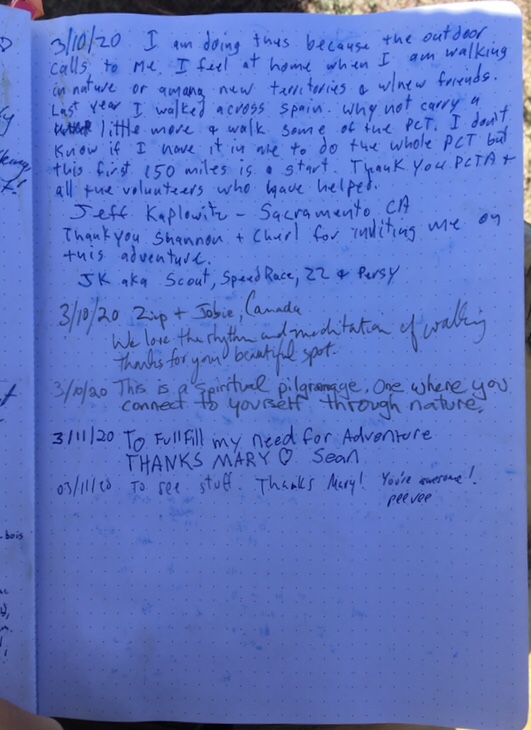 3/10/20 I am doing this because the outdoor
calls to me. I feel at home when I am walking
in nature or among new territories & w/new friends.
Last year I walked across Spain. Why not carry a
little more & walk some of the PCT. I don't
know if I have it in me to do the whole PCT but
this first 150 miles is a start. Thank you PCTA +
all the volunteers who have helped.
Jeff Kaplowitz - Sacramento, CA
Thankyou Shannon + Cheryl for inviting me on
this adventure.
JK aka Scout, SpeedRace, ZZ & Persy
3/10/20 Zup + Jobie, Canada
We love the rhythm and meditation of walking
thanks for your beautiful spot.
3/10/20 This is a spiritual pilgramage. One where you
connect to yourself through nature.
3/11/20 To FullFill my need for Adventure
THANKS MARY ♡ Sean
03/11/20 To see stuff. Thanks Mary! You're awesome!
peevee
bois